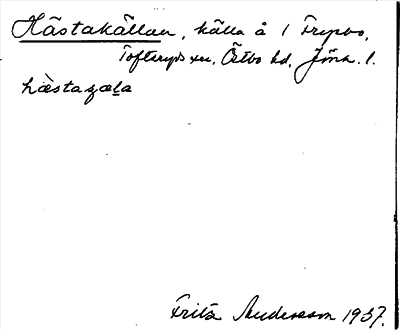 Hästakällan, källa å 1 Frypbo,
Tofteryds sn, Östbo hd, Jönk. l.
hæ̀staɕæl̲a
Fritz Andersson 1937.